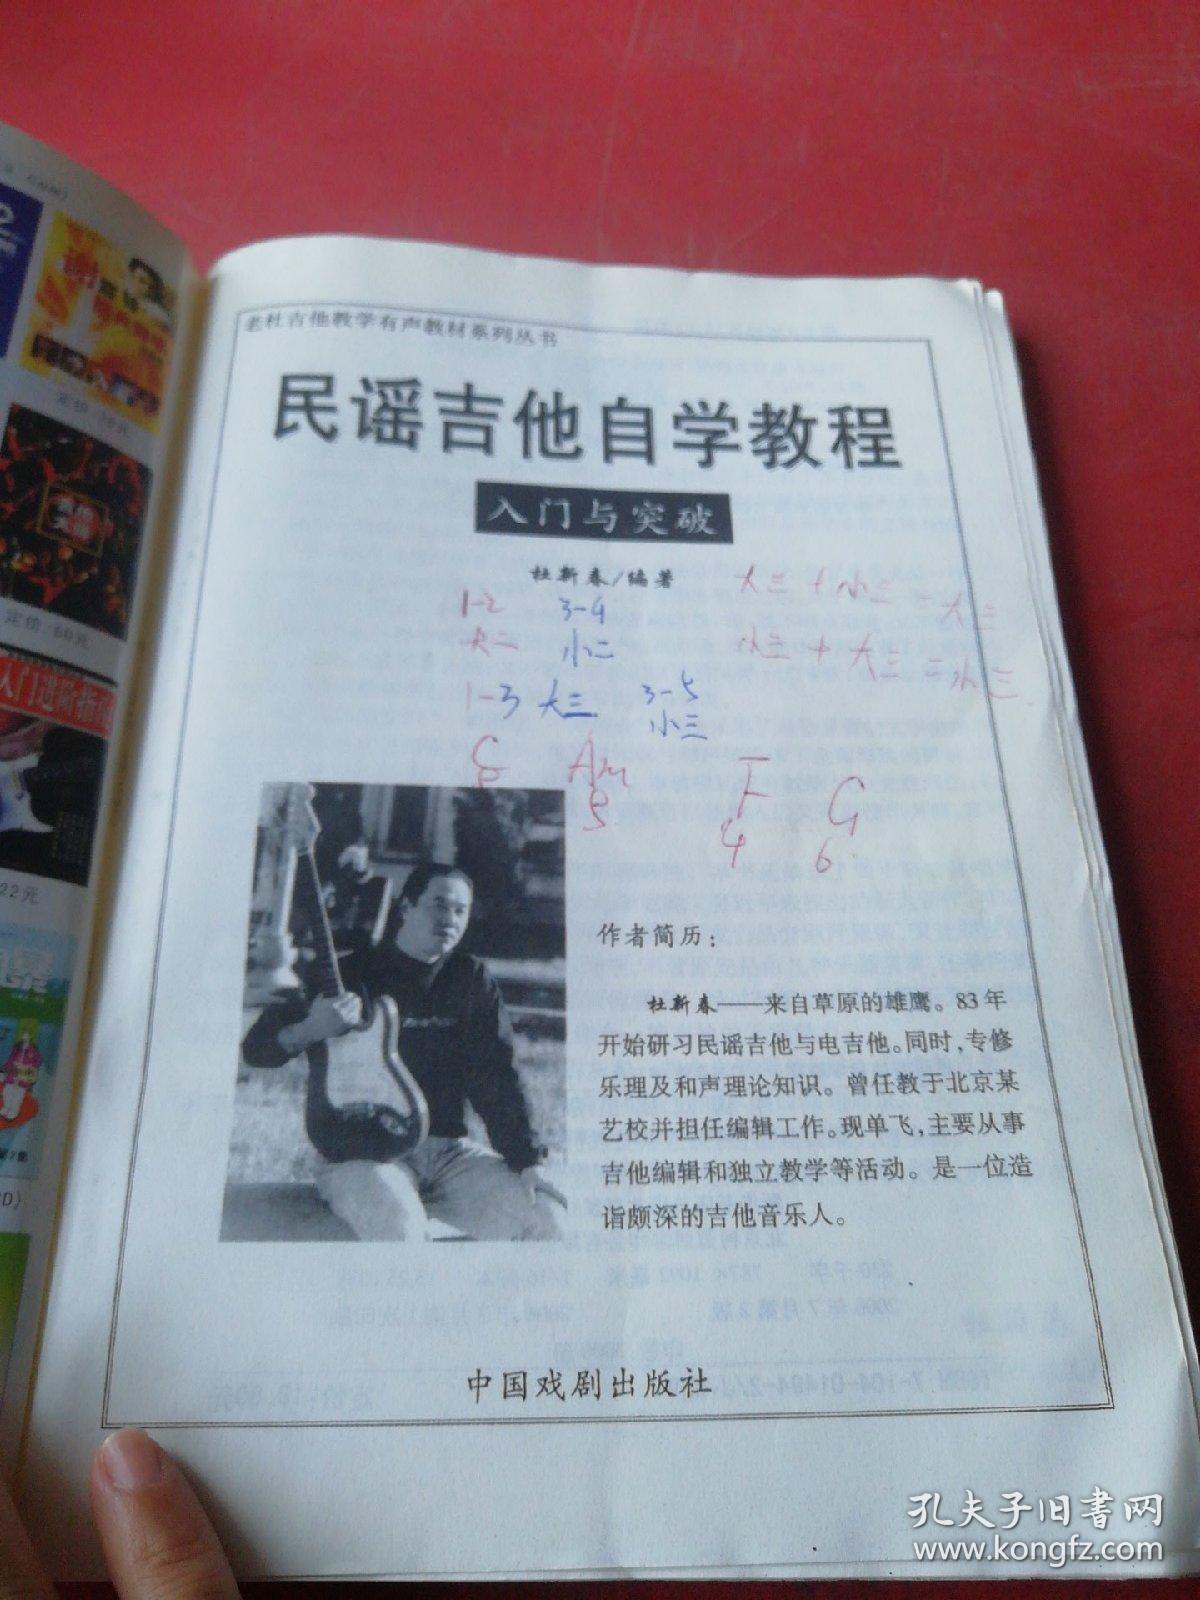 老杜吉他教学有声教材系列丛书
民谣吉他自学教程
入门与突破
杜新春/编著
大三+小三=大三
1-2 3-4
大二 小二
小三+大三=小三
1-3 大三 3-5
小三
C Am F G
5 4 6
作者简历：
杜新春——来自草原的雄鹰。83年
开始研习民谣吉他与电吉他。同时，专修
乐理及和声理论知识。曾任教于北京某
艺校并担任编辑工作。现单飞，主要从事
吉他编辑和独立教学等活动。是一位造
诣颇深的吉他音乐人。
中国戏剧出版社
定价
定价 60元
入门进阶·指
22元
孔夫子旧书网
www.kongfz.com